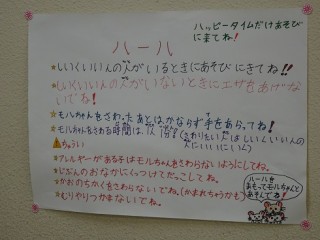 ハッピータイムだけあそび
にきてね!
ハーハ
★しいくいいんの人がいるときにあそびにきてね!!
★しいくいいんの人がいないときにエサをあげな
いでね!
★モルちゃんをさわったあとは、かならず手をあらってね!
★モルちゃんをさわる時間は、1人 (さわりたい人はしいくいいんの
人にいいにいこう)
⚠ちゅうい
★アレルギーがある子はモルちゃんをさわらないようにしてね。
★じぶんのおなかにくっつけてだっこしてね。
★かおのちかくをさわらないでね。(かまれちゃうかも)
★むりやりつかまないでね。
ルールを
まもってモルちゃんと
あそんでね!